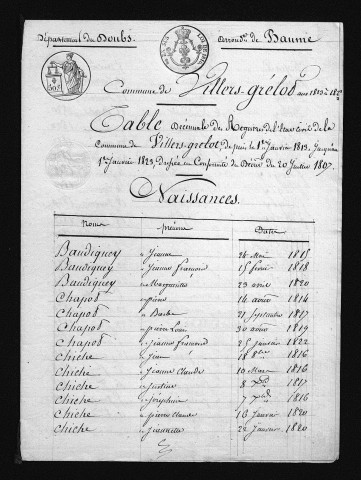 Département du Doubs. Arrondt de Baume
Commune de Villers-grélot ans 1813 à 182
Table Décennale des Registres de l'Etat Civil de la
Commune de Villers-grelot depuis le 1er Janvier 1813 jusqu'au
1er Janvier 1823, dressée en Conformité du Décret du 20 Juillet 1807.
Naissances.
noms prénoms Date
Baudiquey Jeanne 26 Mai 1815
Baudiquey Jeanne françoise 15 février 1818
Baudiquey Marguerite 23 avril 1820
Chapot pierre 14 août 1814
Chapot 21 Septembre 1817
Chapot pierre Louis 30 1819
Chapot Jeanne françoise 25 janvier 1822
Chiche Jean 18 8bre 1816
Chiche Jeanne Claude 10 Mars 1816
Chiche Justine 8 1817
Chiche Joséphine 7 1816
Chiche pierre Claude 16 Janvier 1820
Chiche Jeannette 22 Janvier 1820